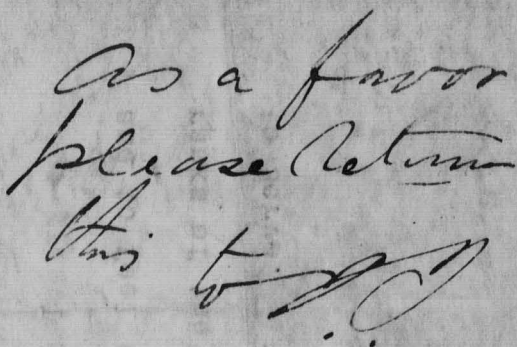 as a favor
please return
this to